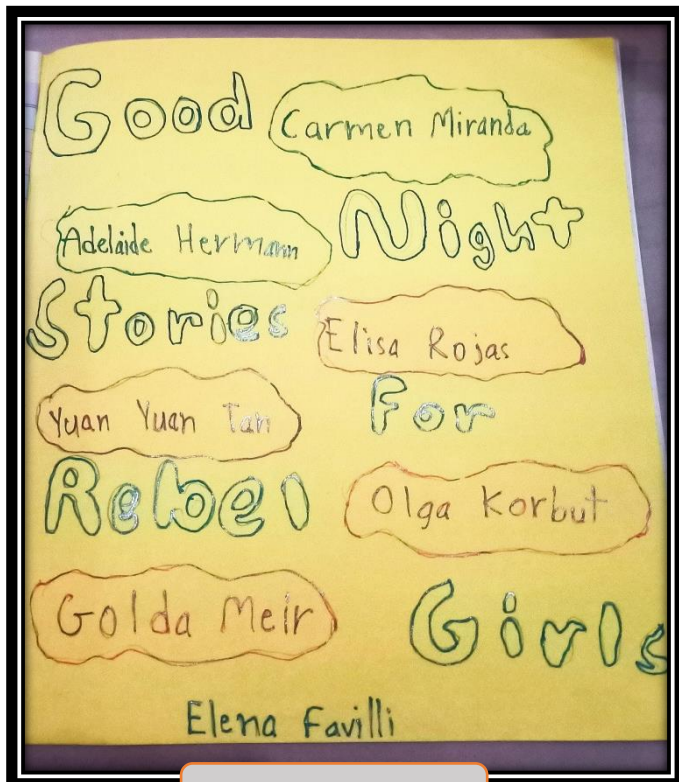 Good Carmen Miranda
Adelaide Hermann Night
Stories Elisa Rojas
Yuan Yuan Tan For
Rebel Olga Korbut
Golda Meir Girls
Elena Favilli